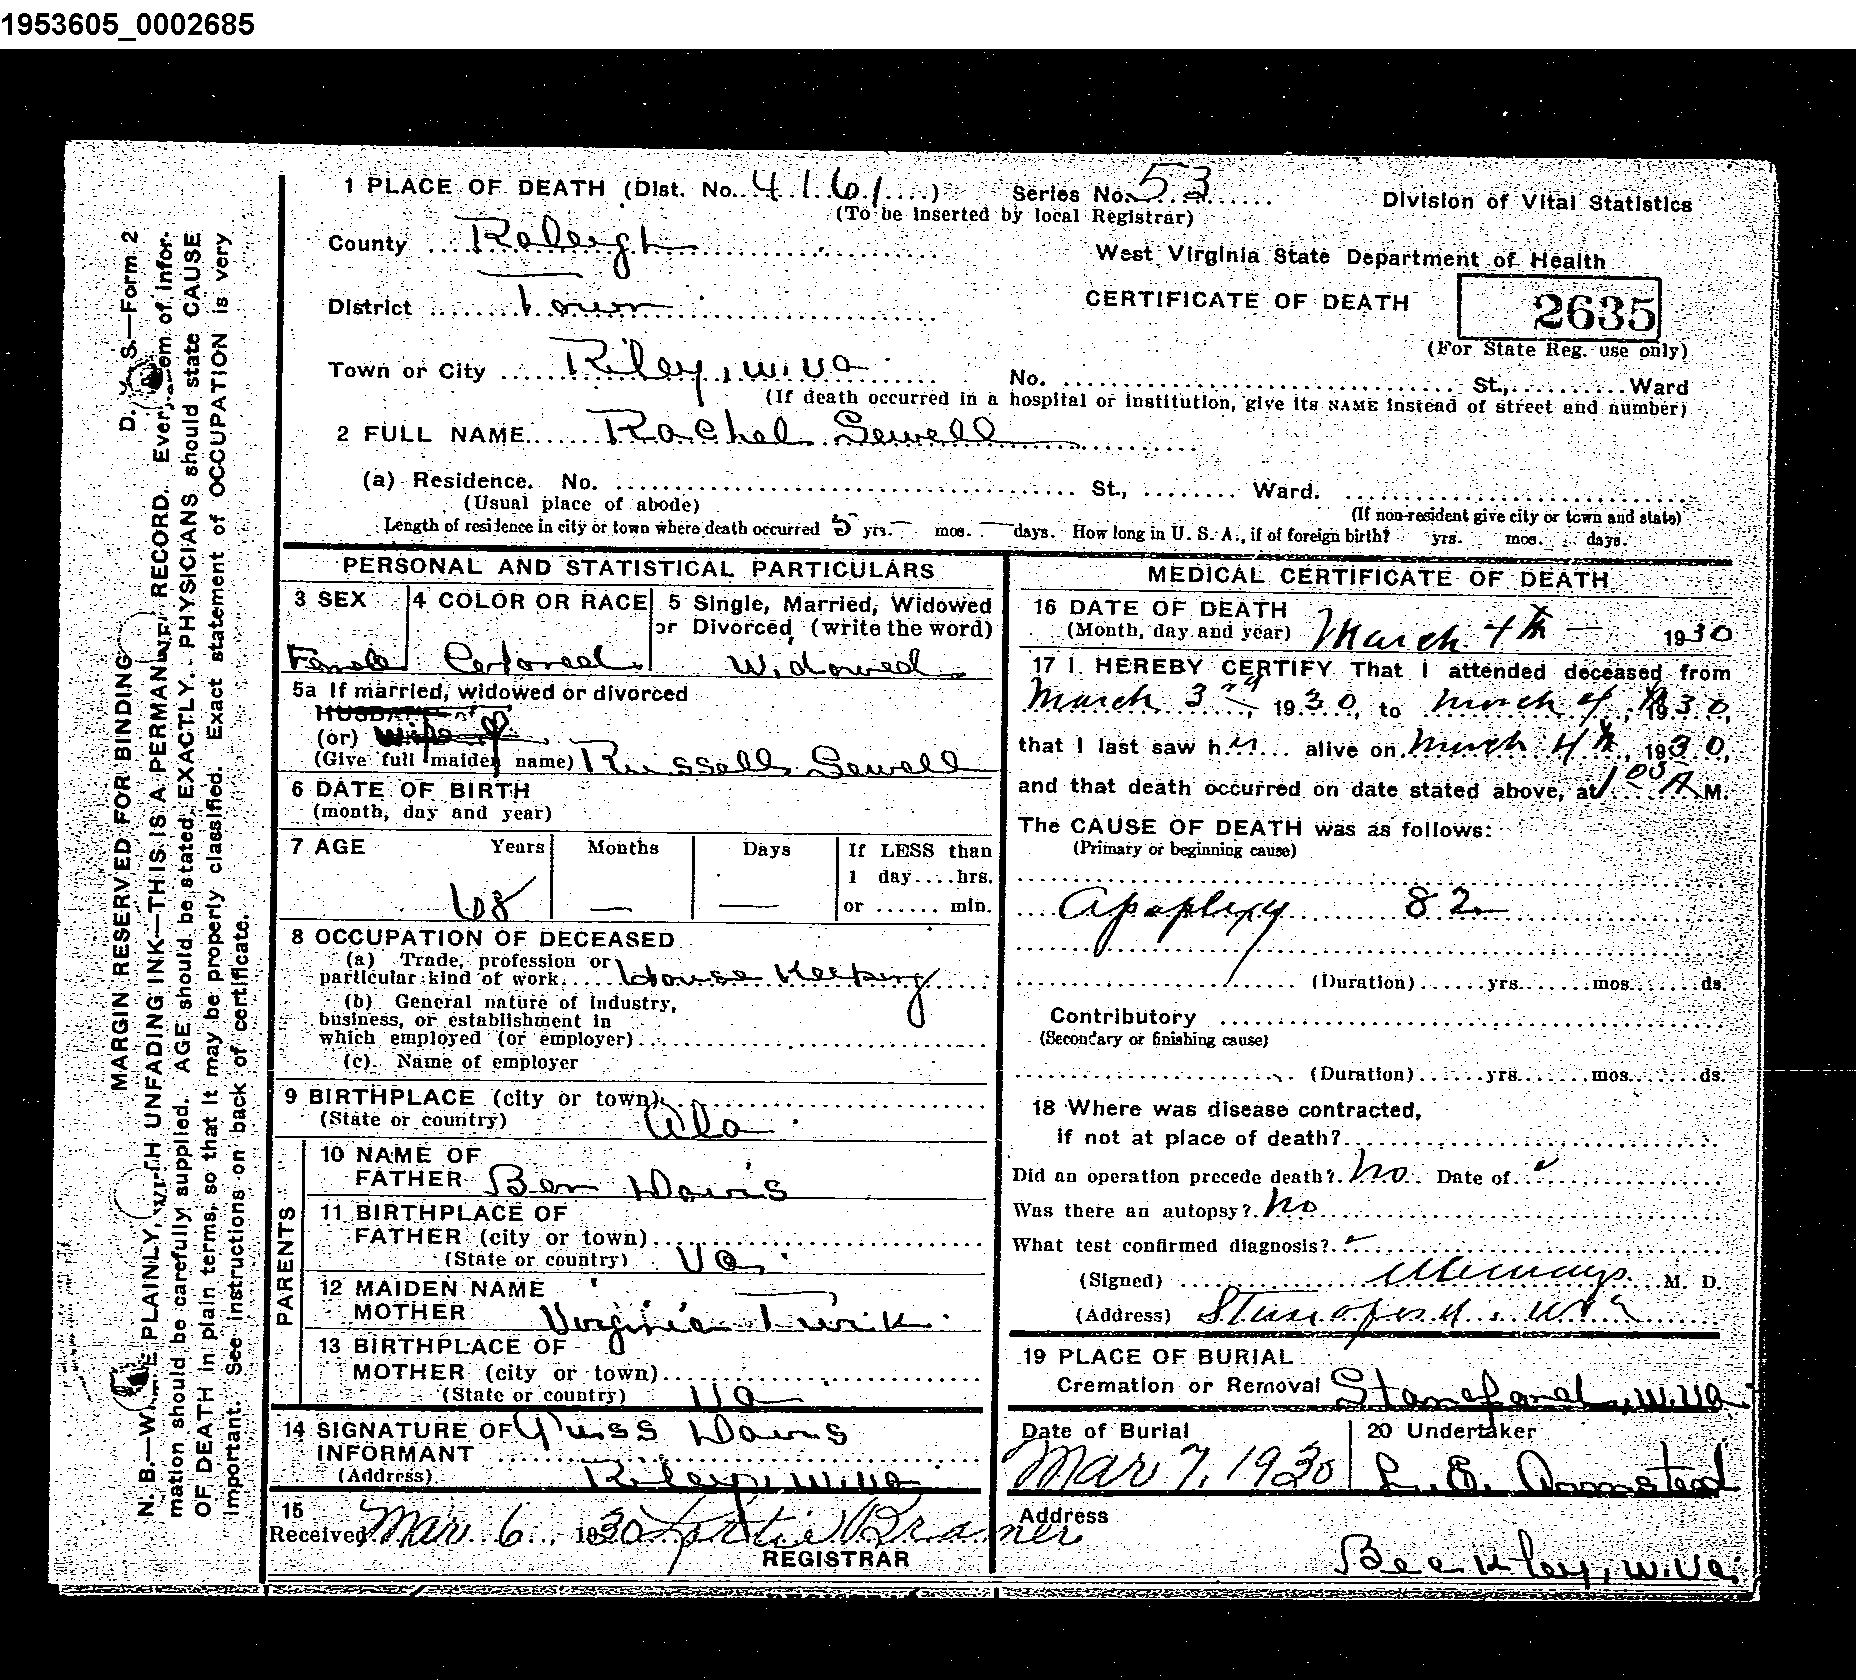 1953605_0002685
1 PLACE OF DEATH (Dist. No. 4161) Series No. 53
(To be inserted by local Registrar)
Division of Vital Statistics
County Raleigh
West Virginia State Department of Health
District Town
CERTIFICATE OF DEATH 2635
(For State Reg. use only)
Town or City Riley, W.Va
No. St., Ward
(If death occurred in a hospital or institution, give its NAME instead of street and number)
2 FULL NAME Rachel Sewell
(a) Residence. No. St., Ward.
(Usual place of abode)
(If non-resident give city or town and state)
Length of residence in city or town where death occurred 5 yrs. — mos. — days. How long in U. S. A., if of foreign birth? yrs. mos. days.
PERSONAL AND STATISTICAL PARTICULARS
3 SEX
Female
4 COLOR OR RACE
Colored
5 Single, Married, Widowed
or Divorced, (write the word)
Widowed
5a If married, widowed or divorced
HUSBAND of
(or) Wife of
(Give full maiden name) Russell Sewell
6 DATE OF BIRTH
(month, day and year)
7 AGE Years Months Days If LESS than
1 day....hrs.
68 — — or ...... min.
8 OCCUPATION OF DECEASED
(a) Trade, profession or
particular kind of work House Keeping
(b) General nature of industry,
business, or establishment in
which employed (or employer)
(c) Name of employer
9 BIRTHPLACE (city or town)
(State or country) Ala
PARENTS
10 NAME OF
FATHER Ben Davis
11 BIRTHPLACE OF
FATHER (city or town)
(State or country) Va.
12 MAIDEN NAME
MOTHER Virginia Turik
13 BIRTHPLACE OF
MOTHER (city or town)
(State or country) Va
14 SIGNATURE OF Davis
INFORMANT
(Address) Riley, W.Va
15
Received Mar. 6, 1930 Bramer
REGISTRAR
MEDICAL CERTIFICATE OF DEATH
16 DATE OF DEATH
(Month, day and year) March 4th — 1930
17 I HEREBY CERTIFY That I attended deceased from
March 3rd, 1930, to March 4th, 1930,
that I last saw her alive on March 4th, 1930,
and that death occurred on date stated above, at 1 00 A M.
The CAUSE OF DEATH was as follows:
(Primary or beginning cause)
Apoplexy 82
(Duration) yrs. mos. ds.
Contributory
(Secondary or finishing cause)
(Duration) yrs. mos. ds.
18 Where was disease contracted,
if not at place of death?
Did an operation precede death? No Date of
Was there an autopsy? No
What test confirmed diagnosis?
(Signed) M. D.
(Address) W.Va
19 PLACE OF BURIAL
Cremation or Removal W.Va.
Date of Burial
Mar 7, 1930
20 Undertaker
L. E. Armstead
Address
Beckley, W.Va.
D. V. S.—Form 2
MARGIN RESERVED FOR BINDING
N. B.—WRITE PLAINLY, WITH UNFADING INK—THIS IS A PERMANENT RECORD. Every item of infor-
mation should be carefully supplied. AGE should be stated EXACTLY. PHYSICIANS should state CAUSE
OF DEATH in plain terms, so that it may be properly classified. Exact statement of OCCUPATION is very
important. See instructions on back of certificate.